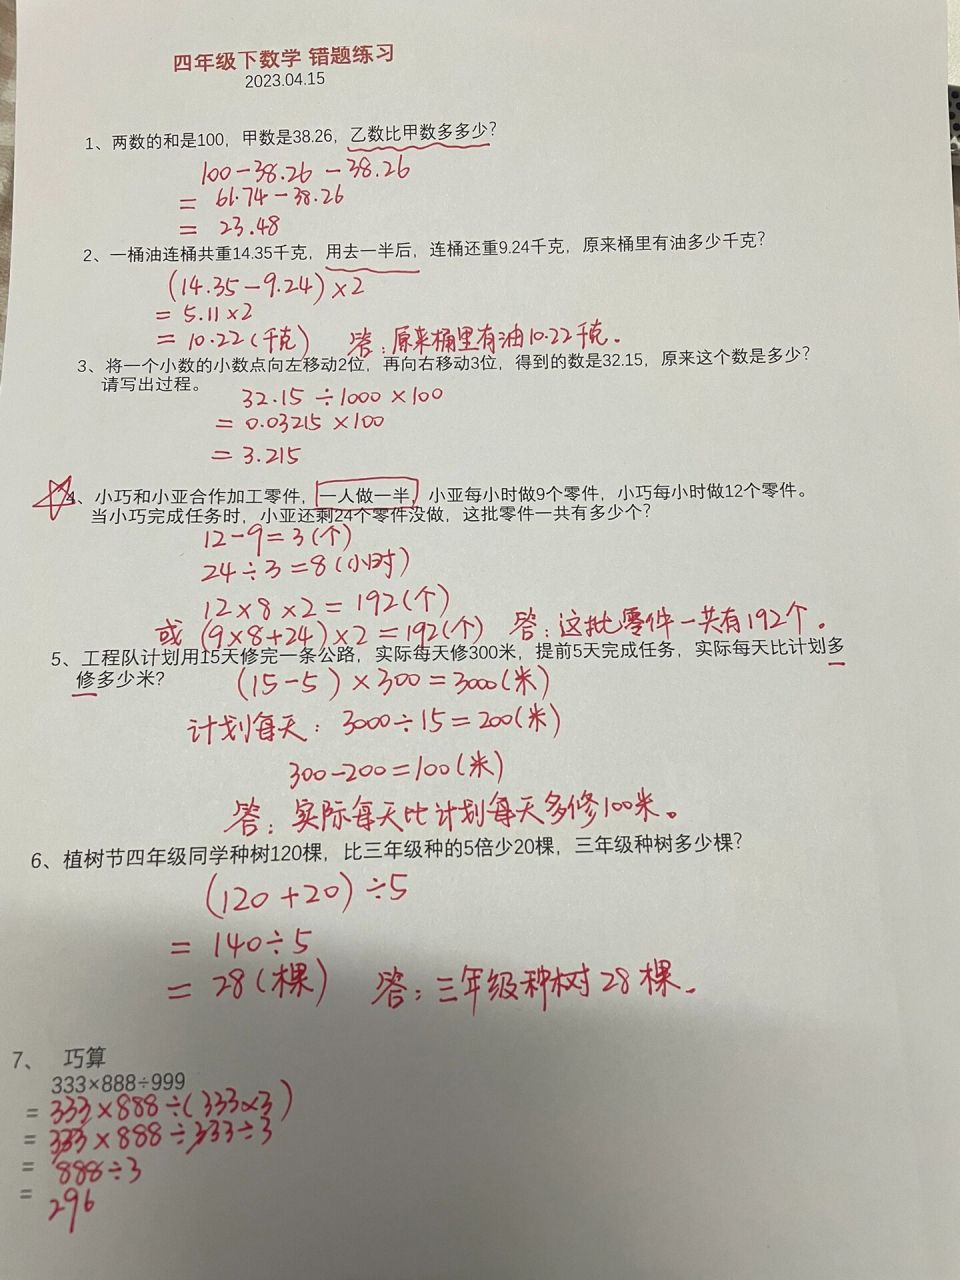 四年级下数学 错题练习
2023.04.15
1、两数的和是100，甲数是38.26，乙数比甲数多多少？
100-38.26-38.26
= 61.74-38.26
= 23.48
2、一桶油连桶共重14.35千克，用去一半后，连桶还重9.24千克，原来桶里有油多少千克？
(14.35-9.24)×2
= 5.11×2
= 10.22(千克) 答：原来桶里有油10.22千克。
3、将一个小数的小数点向左移动2位，再向右移动3位，得到的数是32.15，原来这个数是多少？
请写出过程。
32.15÷1000×100
= 0.03215×100
= 3.215
4、小巧和小亚合作加工零件，一人做一半，小亚每小时做9个零件，小巧每小时做12个零件。
当小巧完成任务时，小亚还剩24个零件没做，这批零件一共有多少个？
12-9=3(个)
24÷3=8(小时)
12×8×2=192(个)
或 (9×8+24)×2=192(个) 答：这批零件一共有192个。
5、工程队计划用15天修完一条公路，实际每天修300米，提前5天完成任务，实际每天比计划多
修多少米？
(15-5)×300=3000(米)
计划每天：3000÷15=200(米)
300-200=100(米)
答：实际每天比计划每天多修100米。
6、植树节四年级同学种树120棵，比三年级种的5倍少20棵，三年级种树多少棵？
(120+20)÷5
= 140÷5
= 28(棵) 答：三年级种树28棵.
7、 巧算
333×888÷999
= 333×888÷(333×3)
= 333×888÷333÷3
= 888÷3
= 296